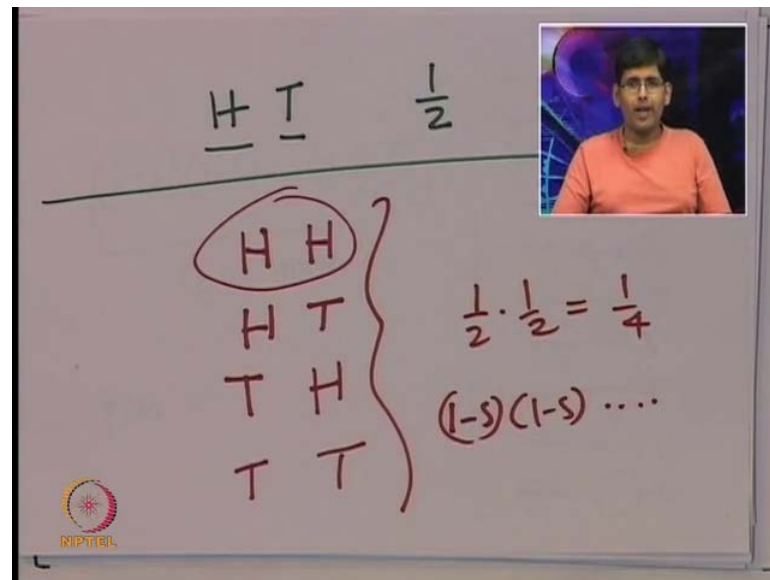 H T 1/2
H H
H T
T H
T T
1/2 · 1/2 = 1/4
(1-s)(1-s) ....
NPTEL